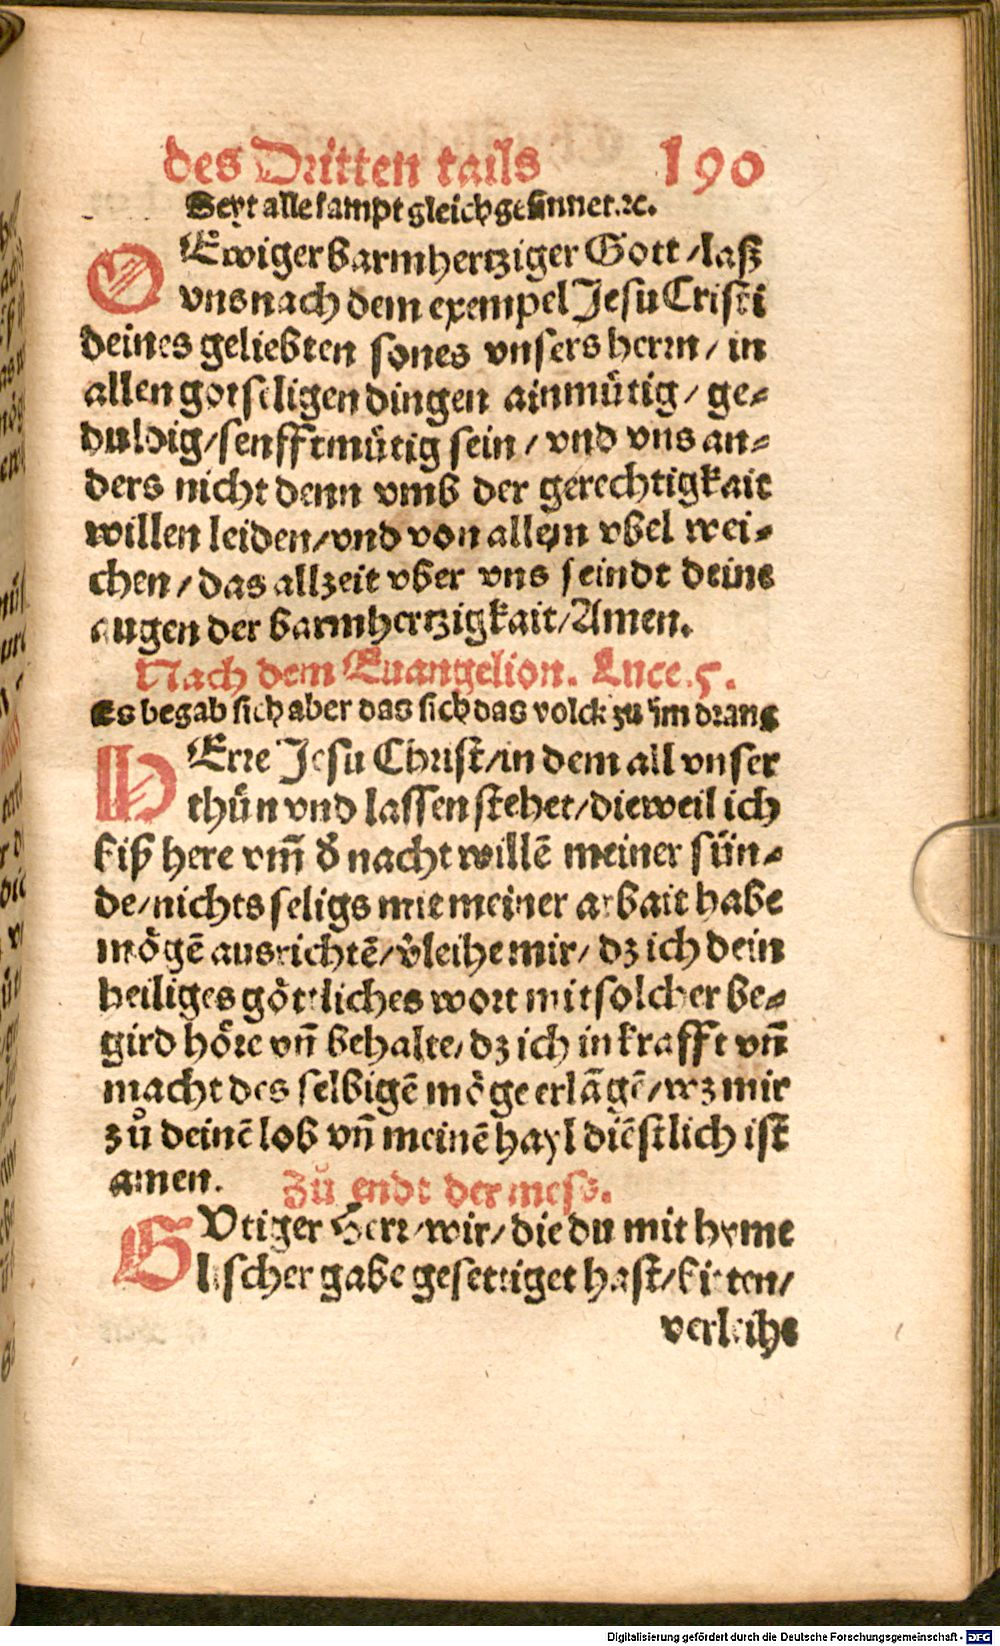 des Dritten tails 190
Seyt alle sampt gleich gesinnet.ꝛc.
O Ewiger barmhertziger Gott / laß
vns nach dem exempel Jesu Cristi
deines geliebten sones vnsers herrn / in
allen gotseligen dingen ainmütig / ge⸗
duldig / senfftmütig sein / vnd vns an⸗
ders nicht denn vmb der gerechtigkait
willen leiden / vnd von allem vbel wei⸗
chen / das allzeit vber vns seindt deine
augen der barmhertzigkait / Amen.
Nach dem Euangelion. Luce.5.
Es begab sich aber das sich das volck zu im drang
HErre Jesu Christ / in dem all vnser
thün vnd lassen stehet / dieweil ich
biß here vm̃ d̕ nacht willẽ meiner sün⸗
de / nichts seligs mit meiner arbait habe
mögẽ ausrichtẽ / v̕leihe mir / dz ich dein
heiliges göttliches wort mit solcher be⸗
gird höre vñ behalte / dz ich in krafft vñ
macht des selbigẽ möge erlãgẽ / wz mir
zů deinẽ lob vñ meinẽ hayl diẽstlich ist
amen. Zů endt der mess.
GVtiger Herr / wir / die du mit hyme
lischer gabe gesettiget hast / bitten /
verleihe
Digitalisierung gefördert durch die Deutsche Forschungsgemeinschaft - DFG